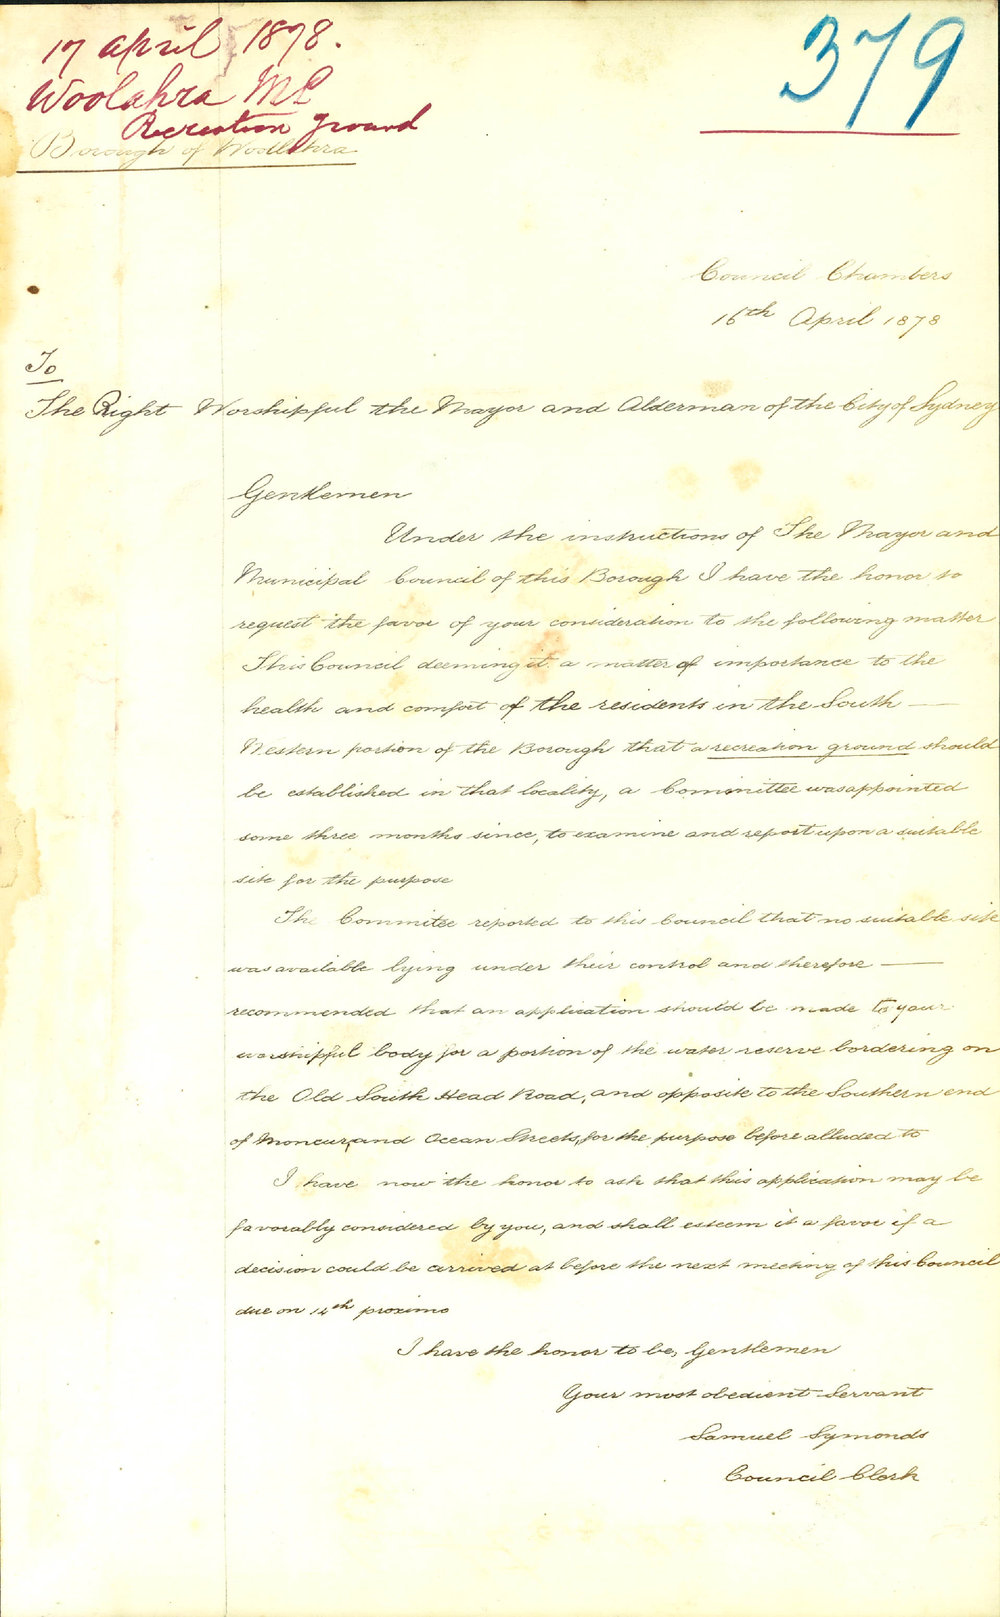 17 April 1878.
379
Woolahra MC
Recreation ground
Borough of Woollahra
Council Chambers
16th April 1878
To
The Right Worshipful the Mayor and Alderman of the City of Sydney
Gentlemen
Under the instructions of The Mayor and
Municipal Council of this Borough I have the honor to
request the favor of your consideration to the following matter
This Council deeming it a matter of importance to the
health and comfort of the residents in the South —
Western portion of the Borough that a recreation ground should
be established in that locality, a Committee was appointed
some three months since, to examine and report upon a suitable
site for the purpose
The Commitee reported to this Council that no suitable site
was available lying under their control and therefore —
recommended that an application should be made to your
worshipful body for a portion of the water reserve bordering on
the Old South Head Road, and opposite to the Southern end
of Moncur, and Ocean Streets, for the purpose before alluded to
I have now the honor to ask that this application may be
favorably considered by you, and shall esteem it a favor if a
decision could be arrived at before the next meeting of this Council
due on 14th proximo
I have the honor to be, Gentlemen
Your most obedient Servant
Samuel Symonds
Council Clerk